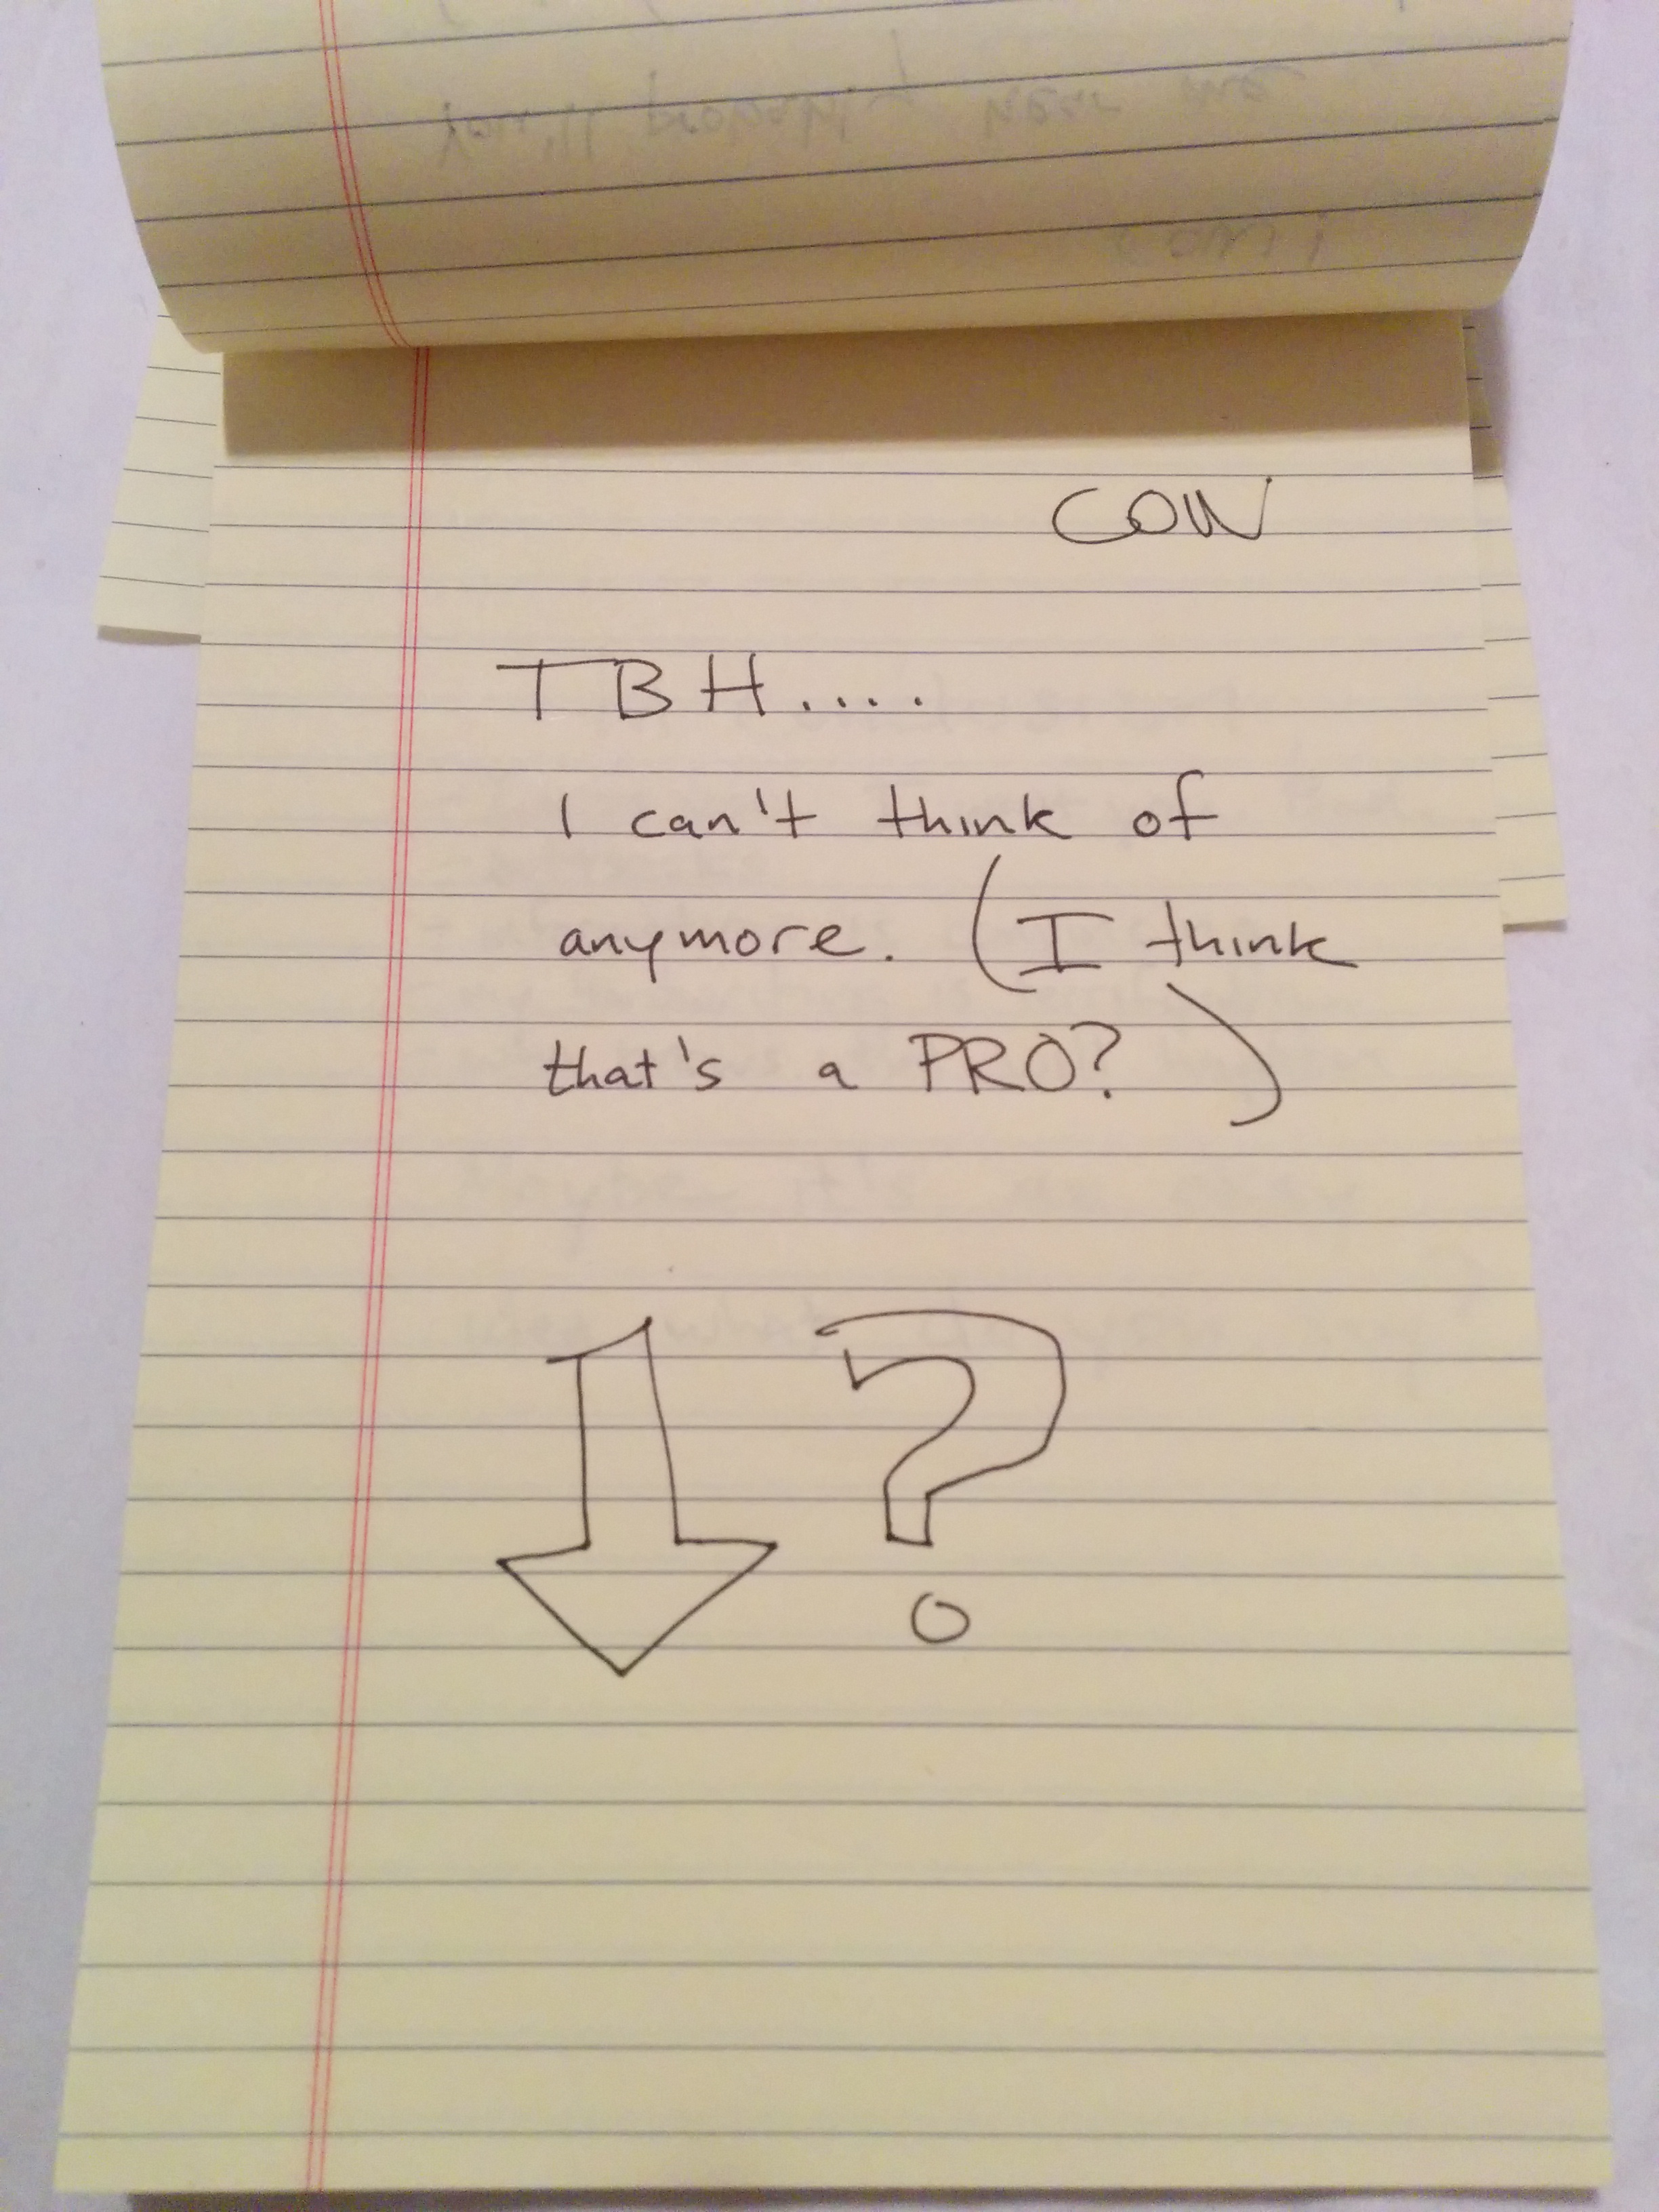 COW
TBH....
I can't think of
anymore. (I think
that's a PRO?)
?